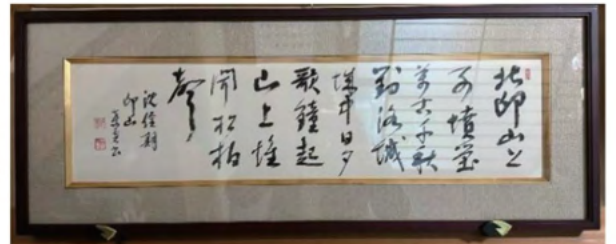 北邙山上
列墳塋
萬古千秋
對洛城
城中日夕
歌鐘起
山上惟
聞松柏
聲
沈佺期
邙山